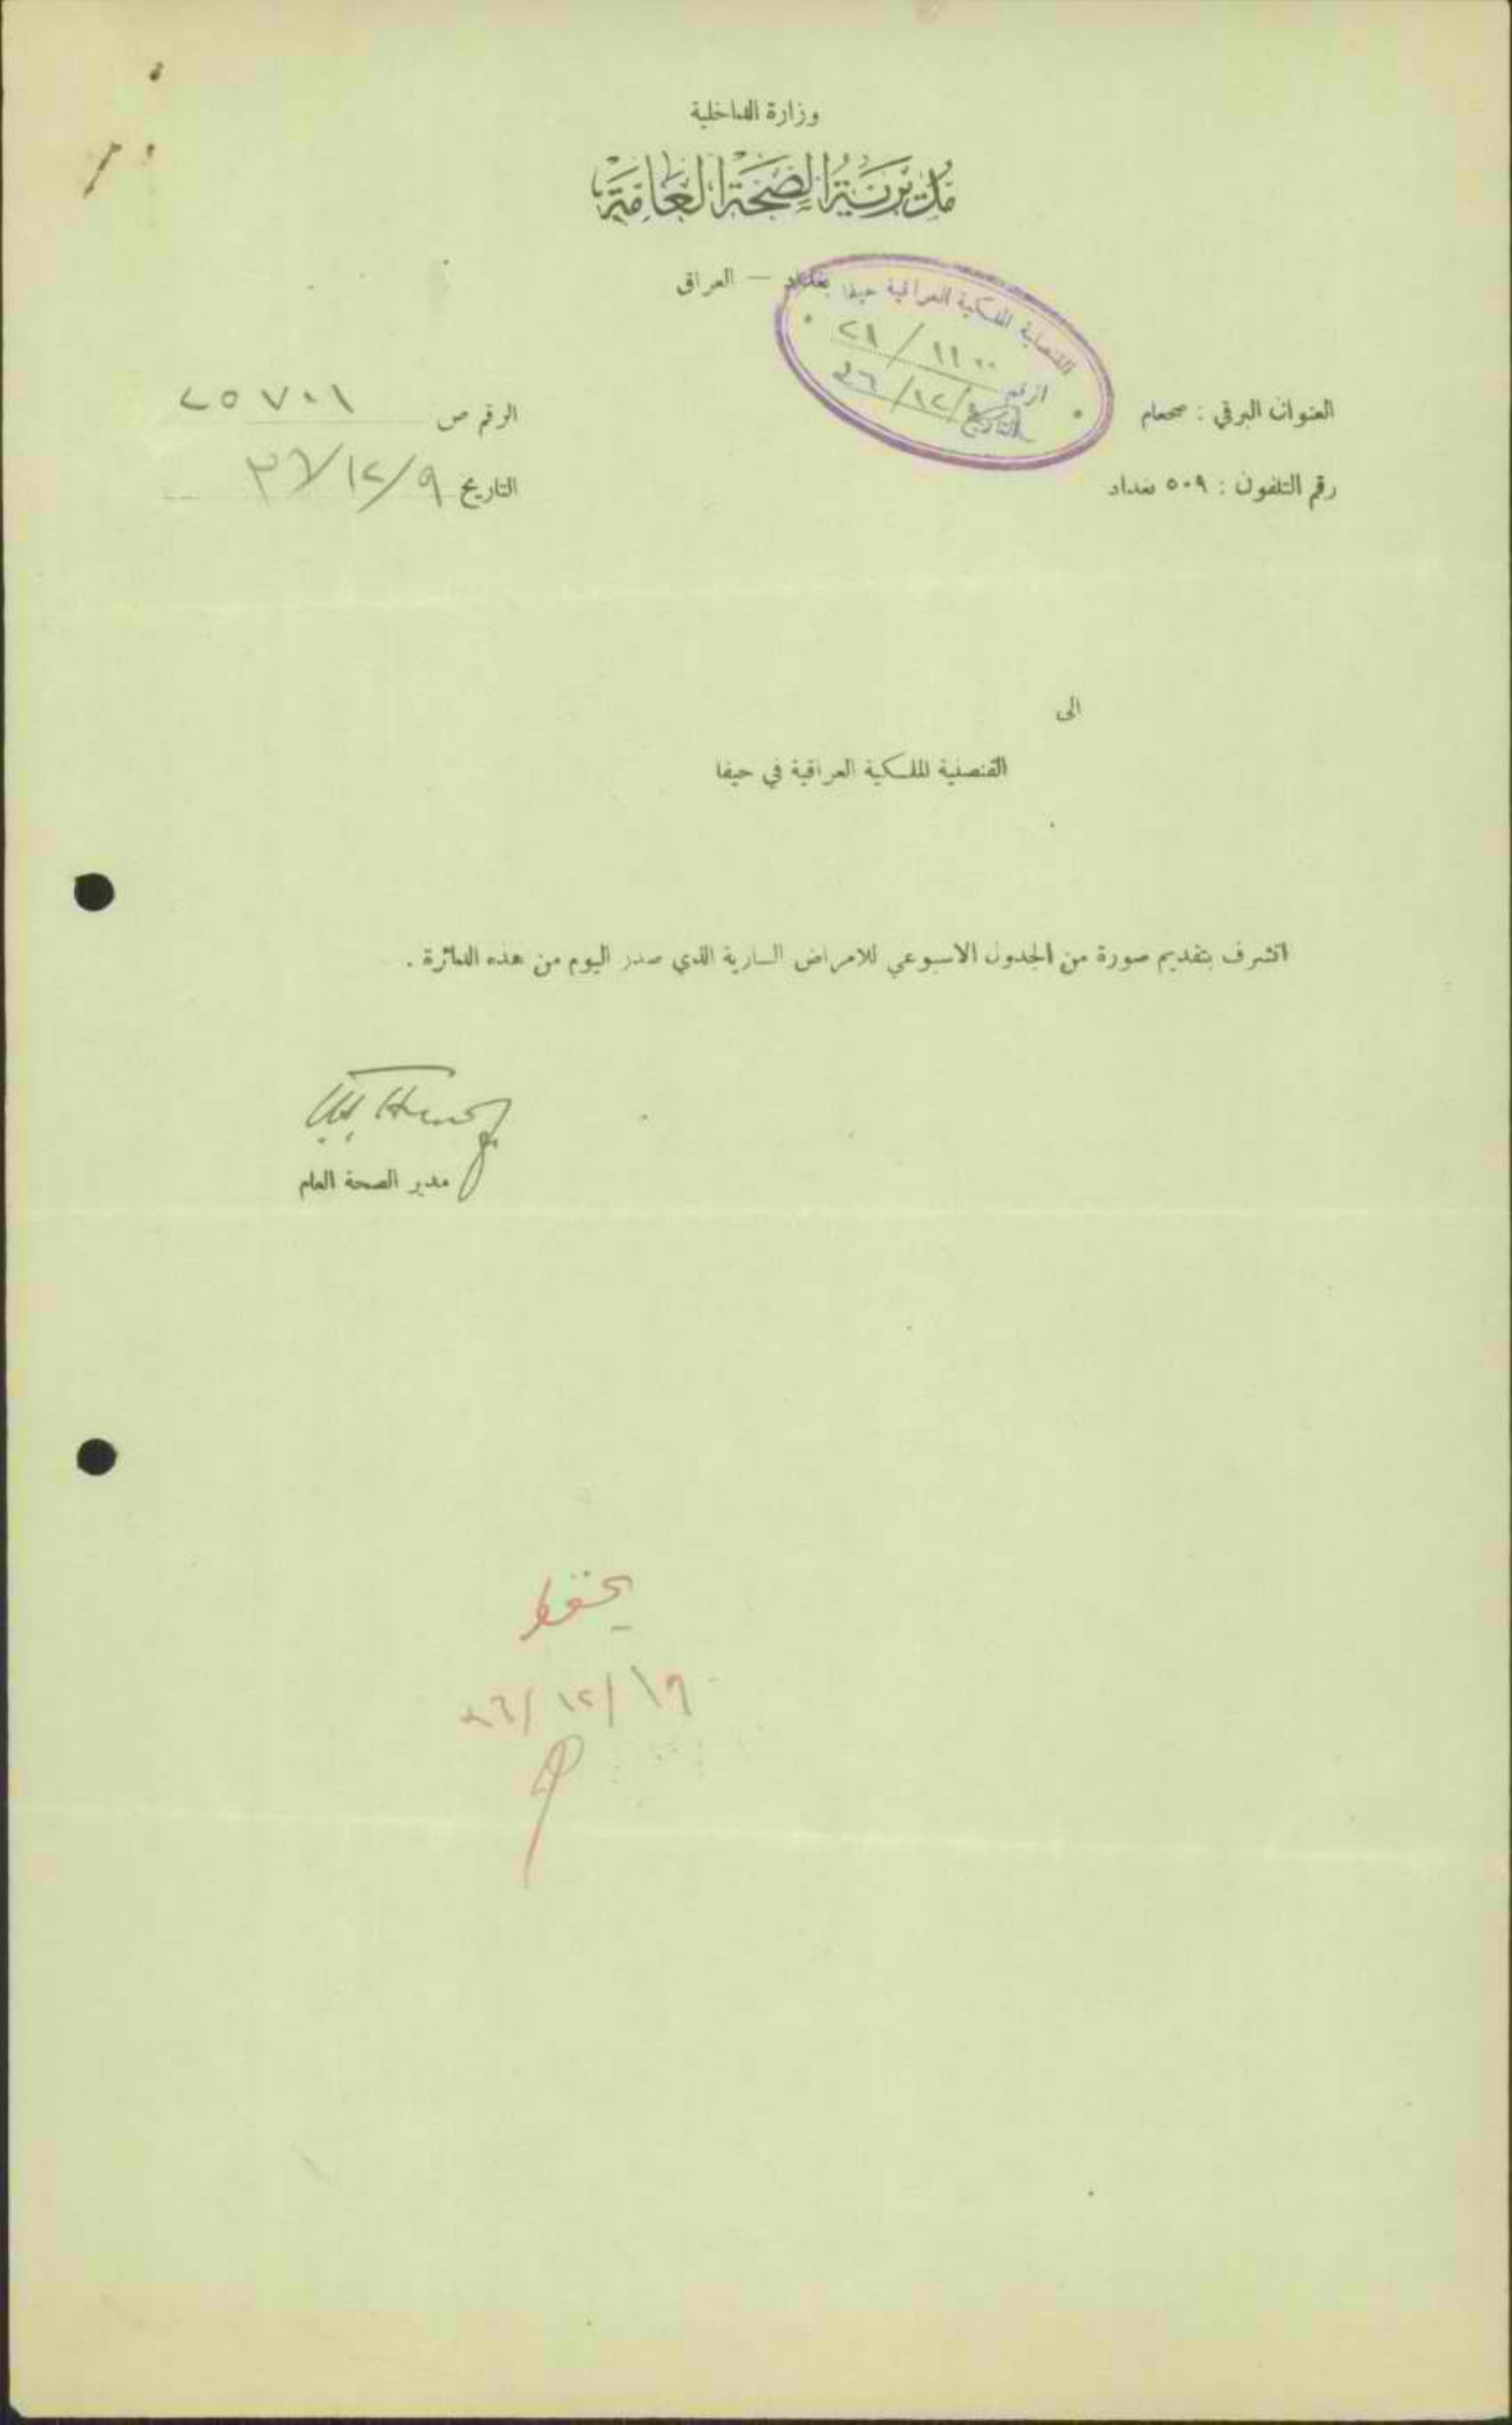 وزارة الداخلية
مديرية الصحة العامة
بغداد — العراق
القنصلية الملكية العراقية حيفا
الرقم ١١٠٠ / ٢١
التاريخ / ١٢ / ٣٦
العنوان البرقي : صحعام
الرقم ص ٢٥٧٠١
رقم التلفون : ٥٠٩ بغداد
التاريخ ٩/١٢/٣٦
الى
القنصلية الملكية العراقية في حيفا
اتشرف بتقديم صورة من الجدول الاسبوعي للامراض السارية الذي صدر اليوم من هذه الدائرة .
مدير الصحة العام
يحفظ
١٩/١٢/٣٦